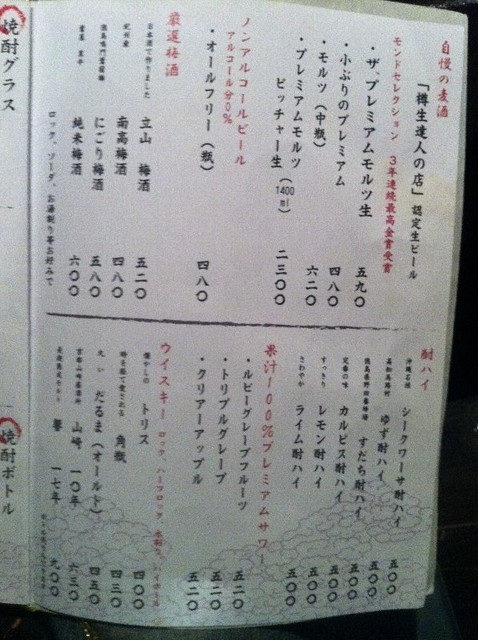 自慢の麦酒
「樽生達人の店」認定生ビール
モンドセレクション 3年連続最高金賞受賞
・ザ、プレミアムモルツ生 五九〇
・小ぶりのプレミアム 四八〇
・モルツ（中瓶） 六二〇
・プレミアムモルツ
ピッチャー生（1400ml） 二三〇〇
ノンアルコールビール
アルコール分0%
・オールフリー（瓶） 四八〇
厳選梅酒
日本酒で作りました 立山 梅酒 五二〇
紀州産 南高梅酒 四八〇
徳島鳴門鶯宿梅 にごり梅酒 五八〇
純米梅酒 六〇〇
ロック、ソーダ、お湯割り等お好みで
酎ハイ
沖縄名物 シークワーサ酎ハイ 五〇〇
高知馬路村 ゆず酎ハイ 五〇〇
すだち酎ハイ 五〇〇
定番の味 カルピス酎ハイ 五〇〇
すっきり レモン酎ハイ 五〇〇
さわやか ライム酎ハイ 五〇〇
果汁100%プレミアムサワー
・ルビーグレープフルーツ 五二〇
・トリプルグレープ 五二〇
・クリアーアップル 五二〇
ウイスキー ロック、ハーフロック 水割り、ハイボール
懐かしの トリス 四〇〇
時を経て愛される 角瓶 四三〇
丸い だるま（オールド） 四五〇
京都山崎蒸溜所 山崎 一〇年 六三〇
響 一七年 九〇〇
焼酎グラス
焼酎ボトル